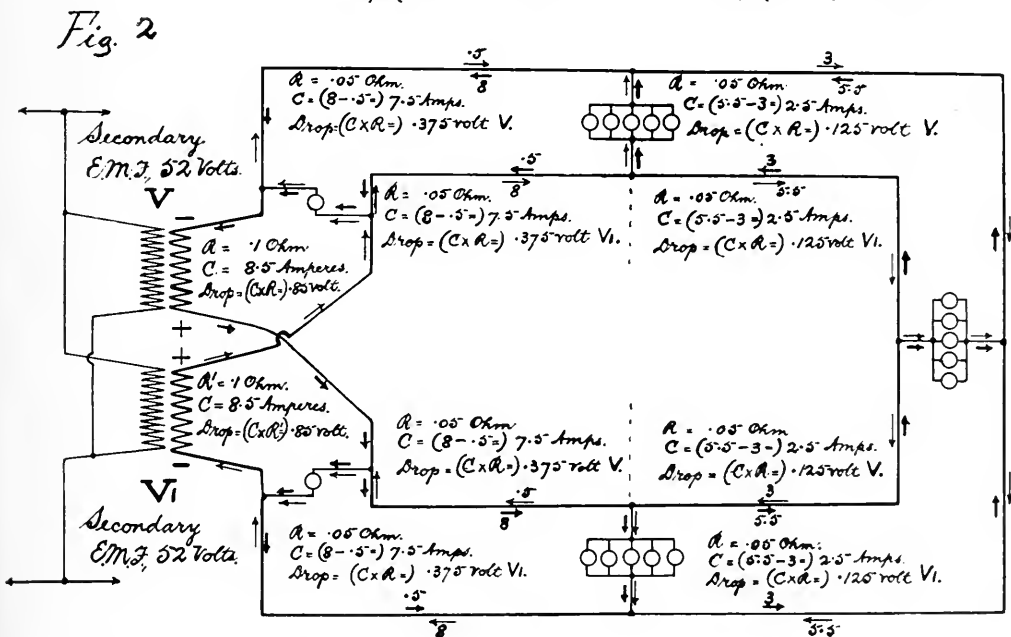 Fig. 2
.5
8
3
5.5
R = .05 Ohm.
C = (8-.5=) 7.5 Amps.
Drop = (C x R =) .375 volt V.
R = .05 Ohm.
C = (5.5-3=) 2.5 Amps.
Drop = (C x R =) .125 volt V.
Secondary
E.M.F., 52 Volts.
V
.5
8
3
5.5
R = .05 Ohm.
C = (8-.5=) 7.5 Amps.
Drop = (C x R =) .375 volt V1.
R = .05 Ohm.
C = (5.5-3=) 2.5 Amps.
Drop = (C x R =) .125 volt V1.
−
R = .1 Ohm
C = 8.5 Amperes.
Drop = (C x R =) .85 volt.
+
+
R' = .1 Ohm.
C = 8.5 Amperes.
Drop = (C x R') .85 volt.
−
R = .05 Ohm
C = (8-.5=) 7.5 Amps.
Drop = (C x R =) .375 volt V.
R = .05 Ohm
C = (5.5-3=) 2.5 Amps.
Drop = (C x R =) .125 volt V.
.5
8
3
5.5
V1
Secondary
E.M.F., 52 Volts.
R = .05 Ohm.
C = (8-.5=) 7.5 Amps.
Drop = (C x R =) .375 volt V1.
R = .05 Ohm.
C = (5.5-3=) 2.5 Amps.
Drop = (C x R =) .125 volt V1.
.5
8
3
5.5